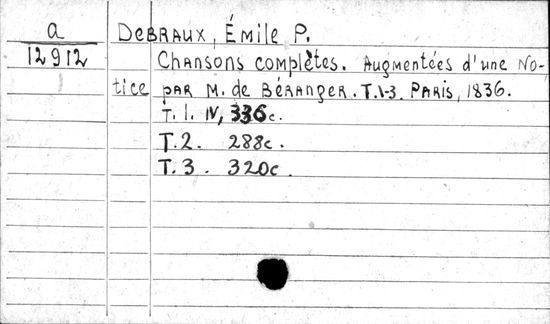 a
12912
Debraux, Émile P.
Chansons complètes. Augmentées d'une No-
tice par M. de Béranger. T.1-3. Paris, 1836.
T. 1. IV, 336c.
T. 2. 288c.
T. 3. 320c.